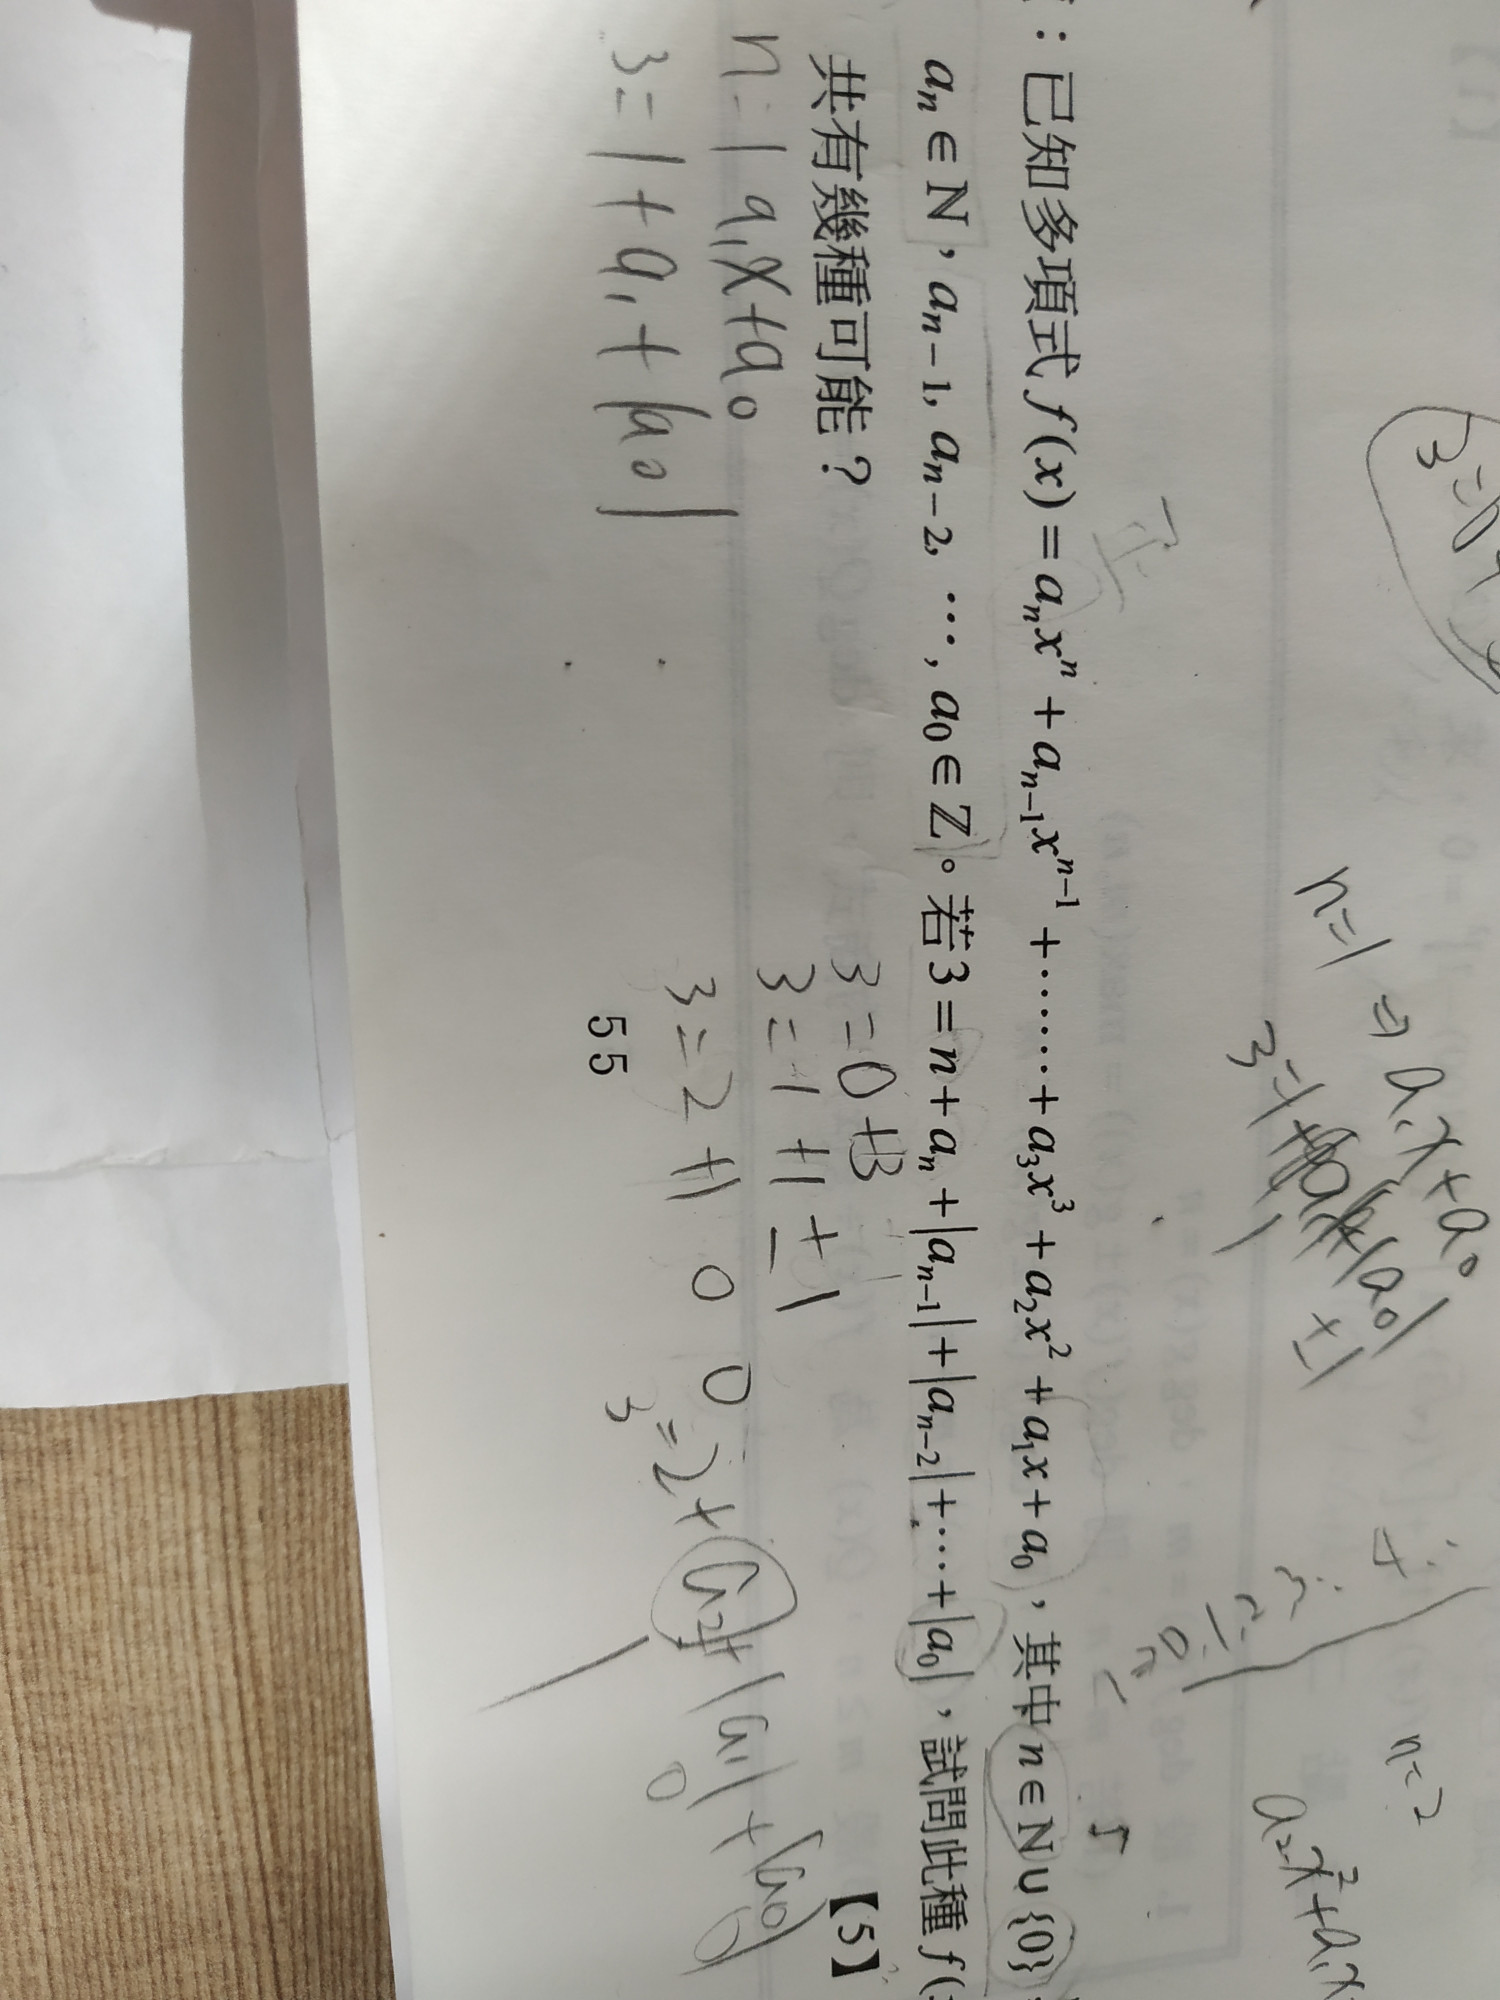 ：已知多項式 f(x)=aₙxⁿ+aₙ₋₁xⁿ⁻¹+⋯⋯+a₃x³+a₂x²+a₁x+a₀，其中 n∈ℕ∪{0}
aₙ∈ℕ，aₙ₋₁, aₙ₋₂, ⋯, a₀∈ℤ。若3=n+aₙ+|aₙ₋₁|+|aₙ₋₂|+⋯+|a₀|，試問此種 f(
共有幾種可能？
【5】
n=1 a₁x+a₀
3=1+a₁+|a₀|
3=0+3
3=1+1±1
3=2+1 0 0
3=2+a₂+|a₁|+|a₀|
0 0
55
n=1 ⇒ a₁x+a₀
±1
n=2
a₂x²+a₁x